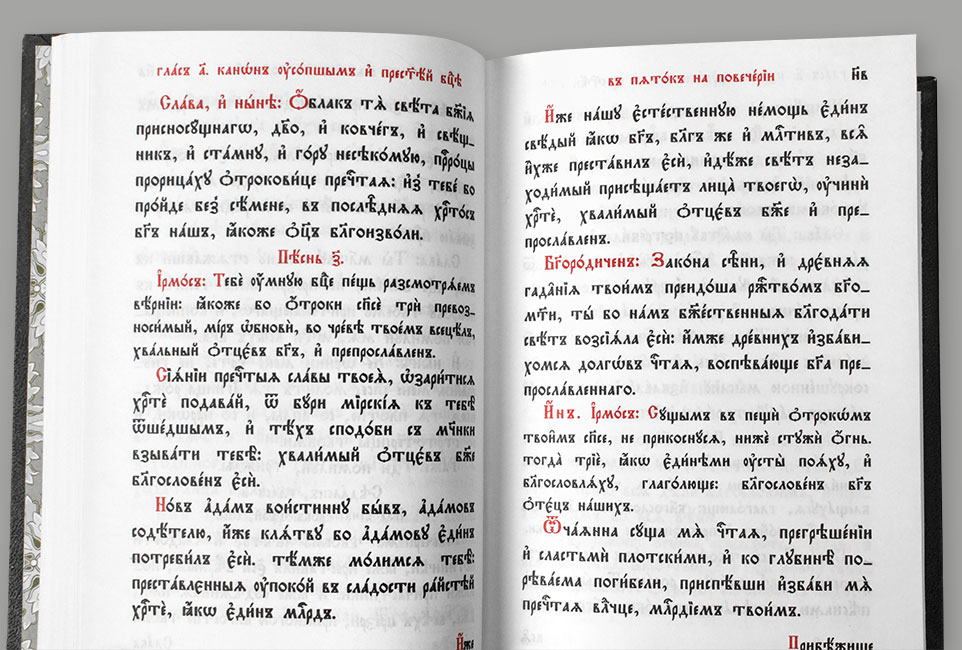 гла́съ а҃. кано́нъ ᲂу҆со́пшымъ и҆ прест҃ѣ́й бц҃ѣ
Сла́ва, и҆ ны́нѣ: Ѻ҆́блакъ тѧ̀ свѣ́та бж҃їѧ
присносꙋ́щнагѡ, дв҃о, и҆ ковче́гъ, и҆ свѣ́щ_
никъ, и҆ ста́мнꙋ, и҆ го́рꙋ несѣко́мꙋю, прⷪ҇ро́цы
прорица́хꙋ ѻ҆трокови́це пречⷭ҇таѧ: и҆з̾ тебє́ бо
про́йде без̾ сѣ́мене, въ послѣ́днѧѧ хрⷭ҇то́съ
бг҃ъ на́шъ, ꙗ҆́коже ѻ҆ц҃ъ бл҃гоизво́ли.
Пѣ́снь з҃.
І҆рмо́съ: Тебѐ ᲂу҆́мнꙋю бц҃е пе́щь разсмотрѧ́емъ
вѣ́рнїи: ꙗ҆́коже бо ѻ҆́троки сп҃сѐ трѝ превоз_
носи́мый, мі́ръ ѡ҆бновѝ, во чре́вѣ твое́мъ всецѣ́лъ,
хва́льный ѻ҆тцє́въ бг҃ъ, и҆ препросла́вленъ.
Сїѧ́нїи пречⷭ҇тыѧ сла́вы твоеѧ̀, ѡ҆зари́тисѧ
хрⷭ҇тѐ пода́вай, ѿ бꙋ́ри мїрскі́ѧ къ тебѣ̀
ѿше́дшымъ, и҆ тѣ́хъ сподо́би съ мч҃ники
взыва́ти тебѣ̀: хвали́мый ѻ҆тцє́въ бж҃е
бл҃гослове́нъ є҆сѝ.
Но́въ а҆да́мъ вои́стиннꙋ бы́въ, а҆да́мовъ
содѣ́телю, и҆́же клѧ́твꙋ во а҆да́мовꙋ є҆ди́нъ
потреби́лъ є҆сѝ. тѣ́мже мо́лимсѧ тебѣ̀:
преста́влєнныѧ ᲂу҆поко́й въ сла́дости ра́йстѣй
хрⷭ҇тѐ, ꙗ҆́кѡ є҆ди́нъ млⷭ҇рдъ.
И҆́же
въ пѧто́къ на повече́рїи
н҃в
И҆́же на́шꙋ є҆сте́ственнꙋю не́мощь є҆ди́нъ
свѣ́дый ꙗ҆́кѡ бг҃ъ, бл҃гъ же и҆ млⷭ҇тивъ, всѧ̑
и҆̀хже преста́вилъ є҆сѝ, и҆дѣ́же свѣ́тъ неза_
ходи́мый присѣща́етъ лица̀ твоегѡ̀, ᲂу҆чинѝ
хрⷭ҇тѐ, хвали́мый ѻ҆тцє́въ бж҃е и҆ пре_
просла́вленъ.
Бг҃оро́диченъ: Зако́на сѣ́ни, и҆ дрє́внѧѧ
гада̑нїѧ твои́мъ преидо́ша ржⷭ҇тво́мъ бг҃о_
мт҃и, ты́ бо на́мъ бж҃е́ственныѧ бл҃года́ти
свѣ́тъ возсїѧ́ла є҆сѝ: и҆́мже дре́внихъ и҆зба́ви_
хомсѧ долгѡ́въ чⷭ҇таѧ, воспѣва́юще бг҃а пре_
просла́вленнаго.
И҆́нъ. І҆рмо́съ: Сꙋ́щымъ въ пещѝ ѻ҆трокѡ́мъ
твои̑мъ сп҃се, не прикоснꙋ́сѧ, нижѐ стꙋжѝ ѻ҆́гнь.
тогда̀ трїѐ, ꙗ҆́кѡ є҆ди́нѣми ᲂу҆сты̀ поѧ́хꙋ, и҆
благословлѧ́хꙋ, глаго́люще: благослове́нъ бг҃ъ
ѻ҆тє́цъ на́шихъ.
Ѿча́ѧнна сꙋ́ща мѧ̀ чⷭ҇таѧ, прегрѣше́нїи
и҆ сластьмѝ пло́тскими, и҆ ко глꙋбинѣ̀ по_
рѣва́ема поги́бели, приспѣ́вши и҆зба́ви мѧ̀
пречⷭ҇таѧ влⷣчце, млⷭ҇рдїемъ твои́мъ.
Прибѣ́жище